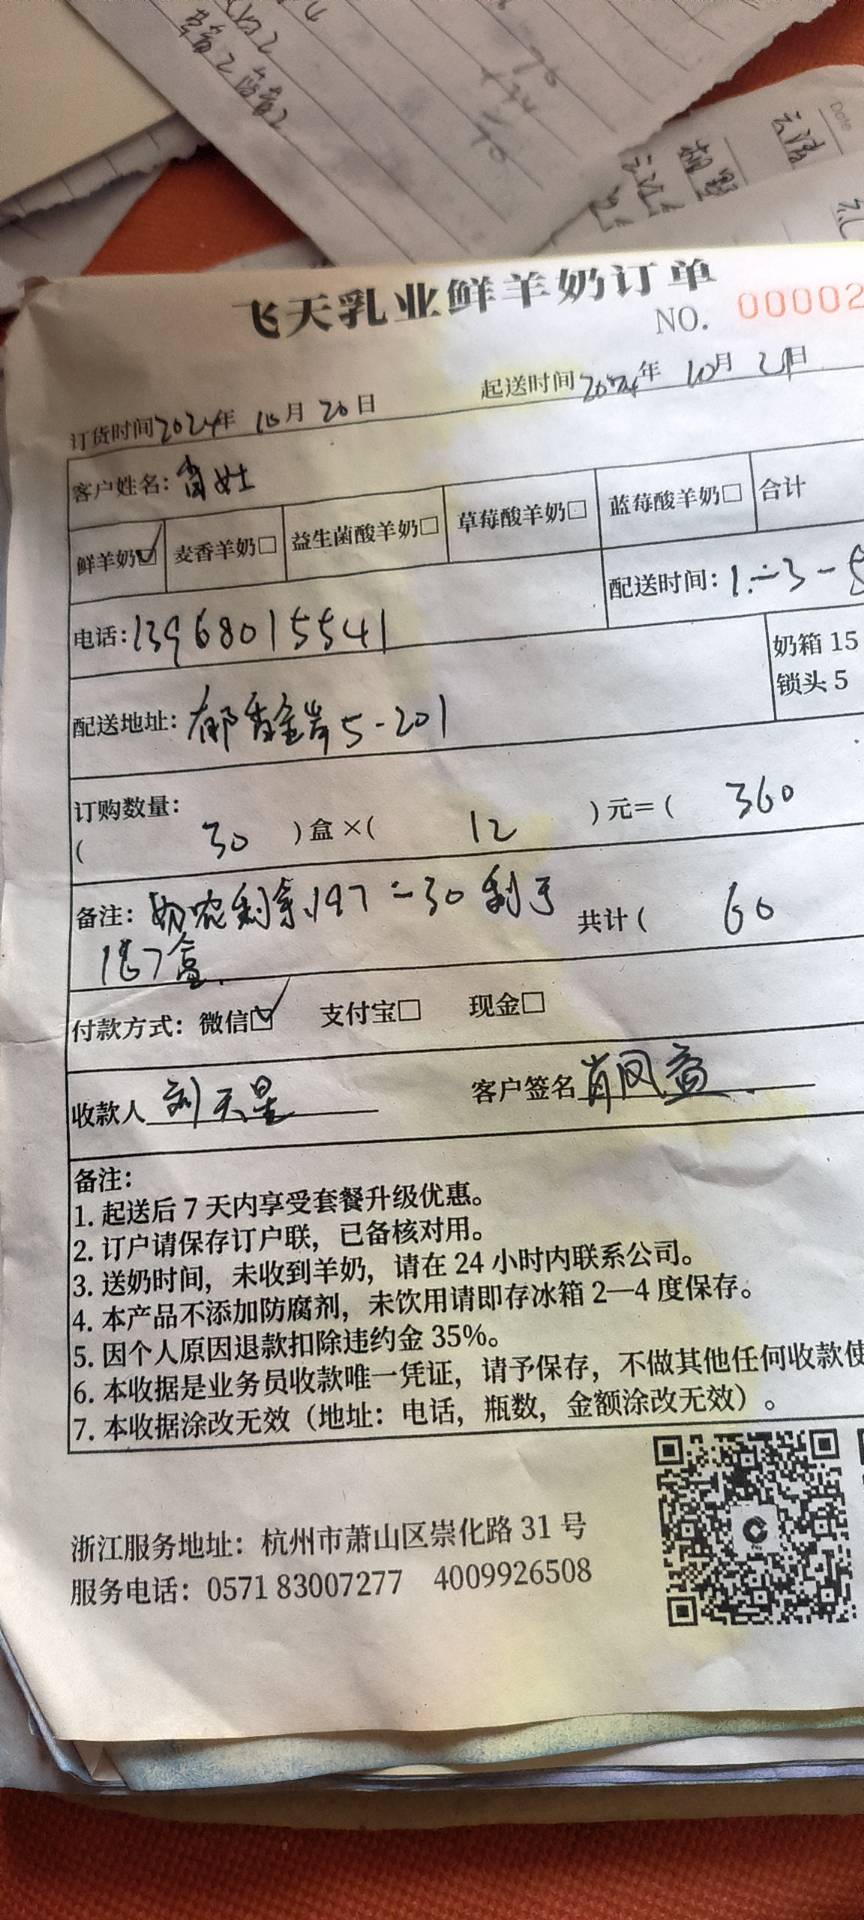 草莓2蓝莓2
Date
飞天乳业鲜羊奶订单
NO. 00002
订货时间2024年 10月 20日
起送时间2024年 10月 21日
客户姓名：肖女士
鲜羊奶☑ 麦香羊奶□ 益生菌酸羊奶□ 草莓酸羊奶□ 蓝莓酸羊奶□ 合计
电话：13968015541
配送时间：1.二3-5
配送地址：郁香金岸5-201
奶箱 15
锁头 5
订购数量：
( 30 )盒×( 12 )元=( 360
备注：奶农剩余197-30剩于
167盒.
共计( 60
付款方式：微信☑ 支付宝□ 现金□
收款人 刘天星
客户签名 肖凤益
备注：
1. 起送后 7 天内享受套餐升级优惠。
2. 订户请保存订户联，已备核对用。
3. 送奶时间，未收到羊奶，请在 24 小时内联系公司。
4. 本产品不添加防腐剂，未饮用请即存冰箱 2—4 度保存。
5. 因个人原因退款扣除违约金 35%。
6. 本收据是业务员收款唯一凭证，请予保存，不做其他任何收款使
7. 本收据涂改无效（地址：电话，瓶数，金额涂改无效）。
浙江服务地址：杭州市萧山区崇化路 31 号
服务电话：0571 83007277 4009926508